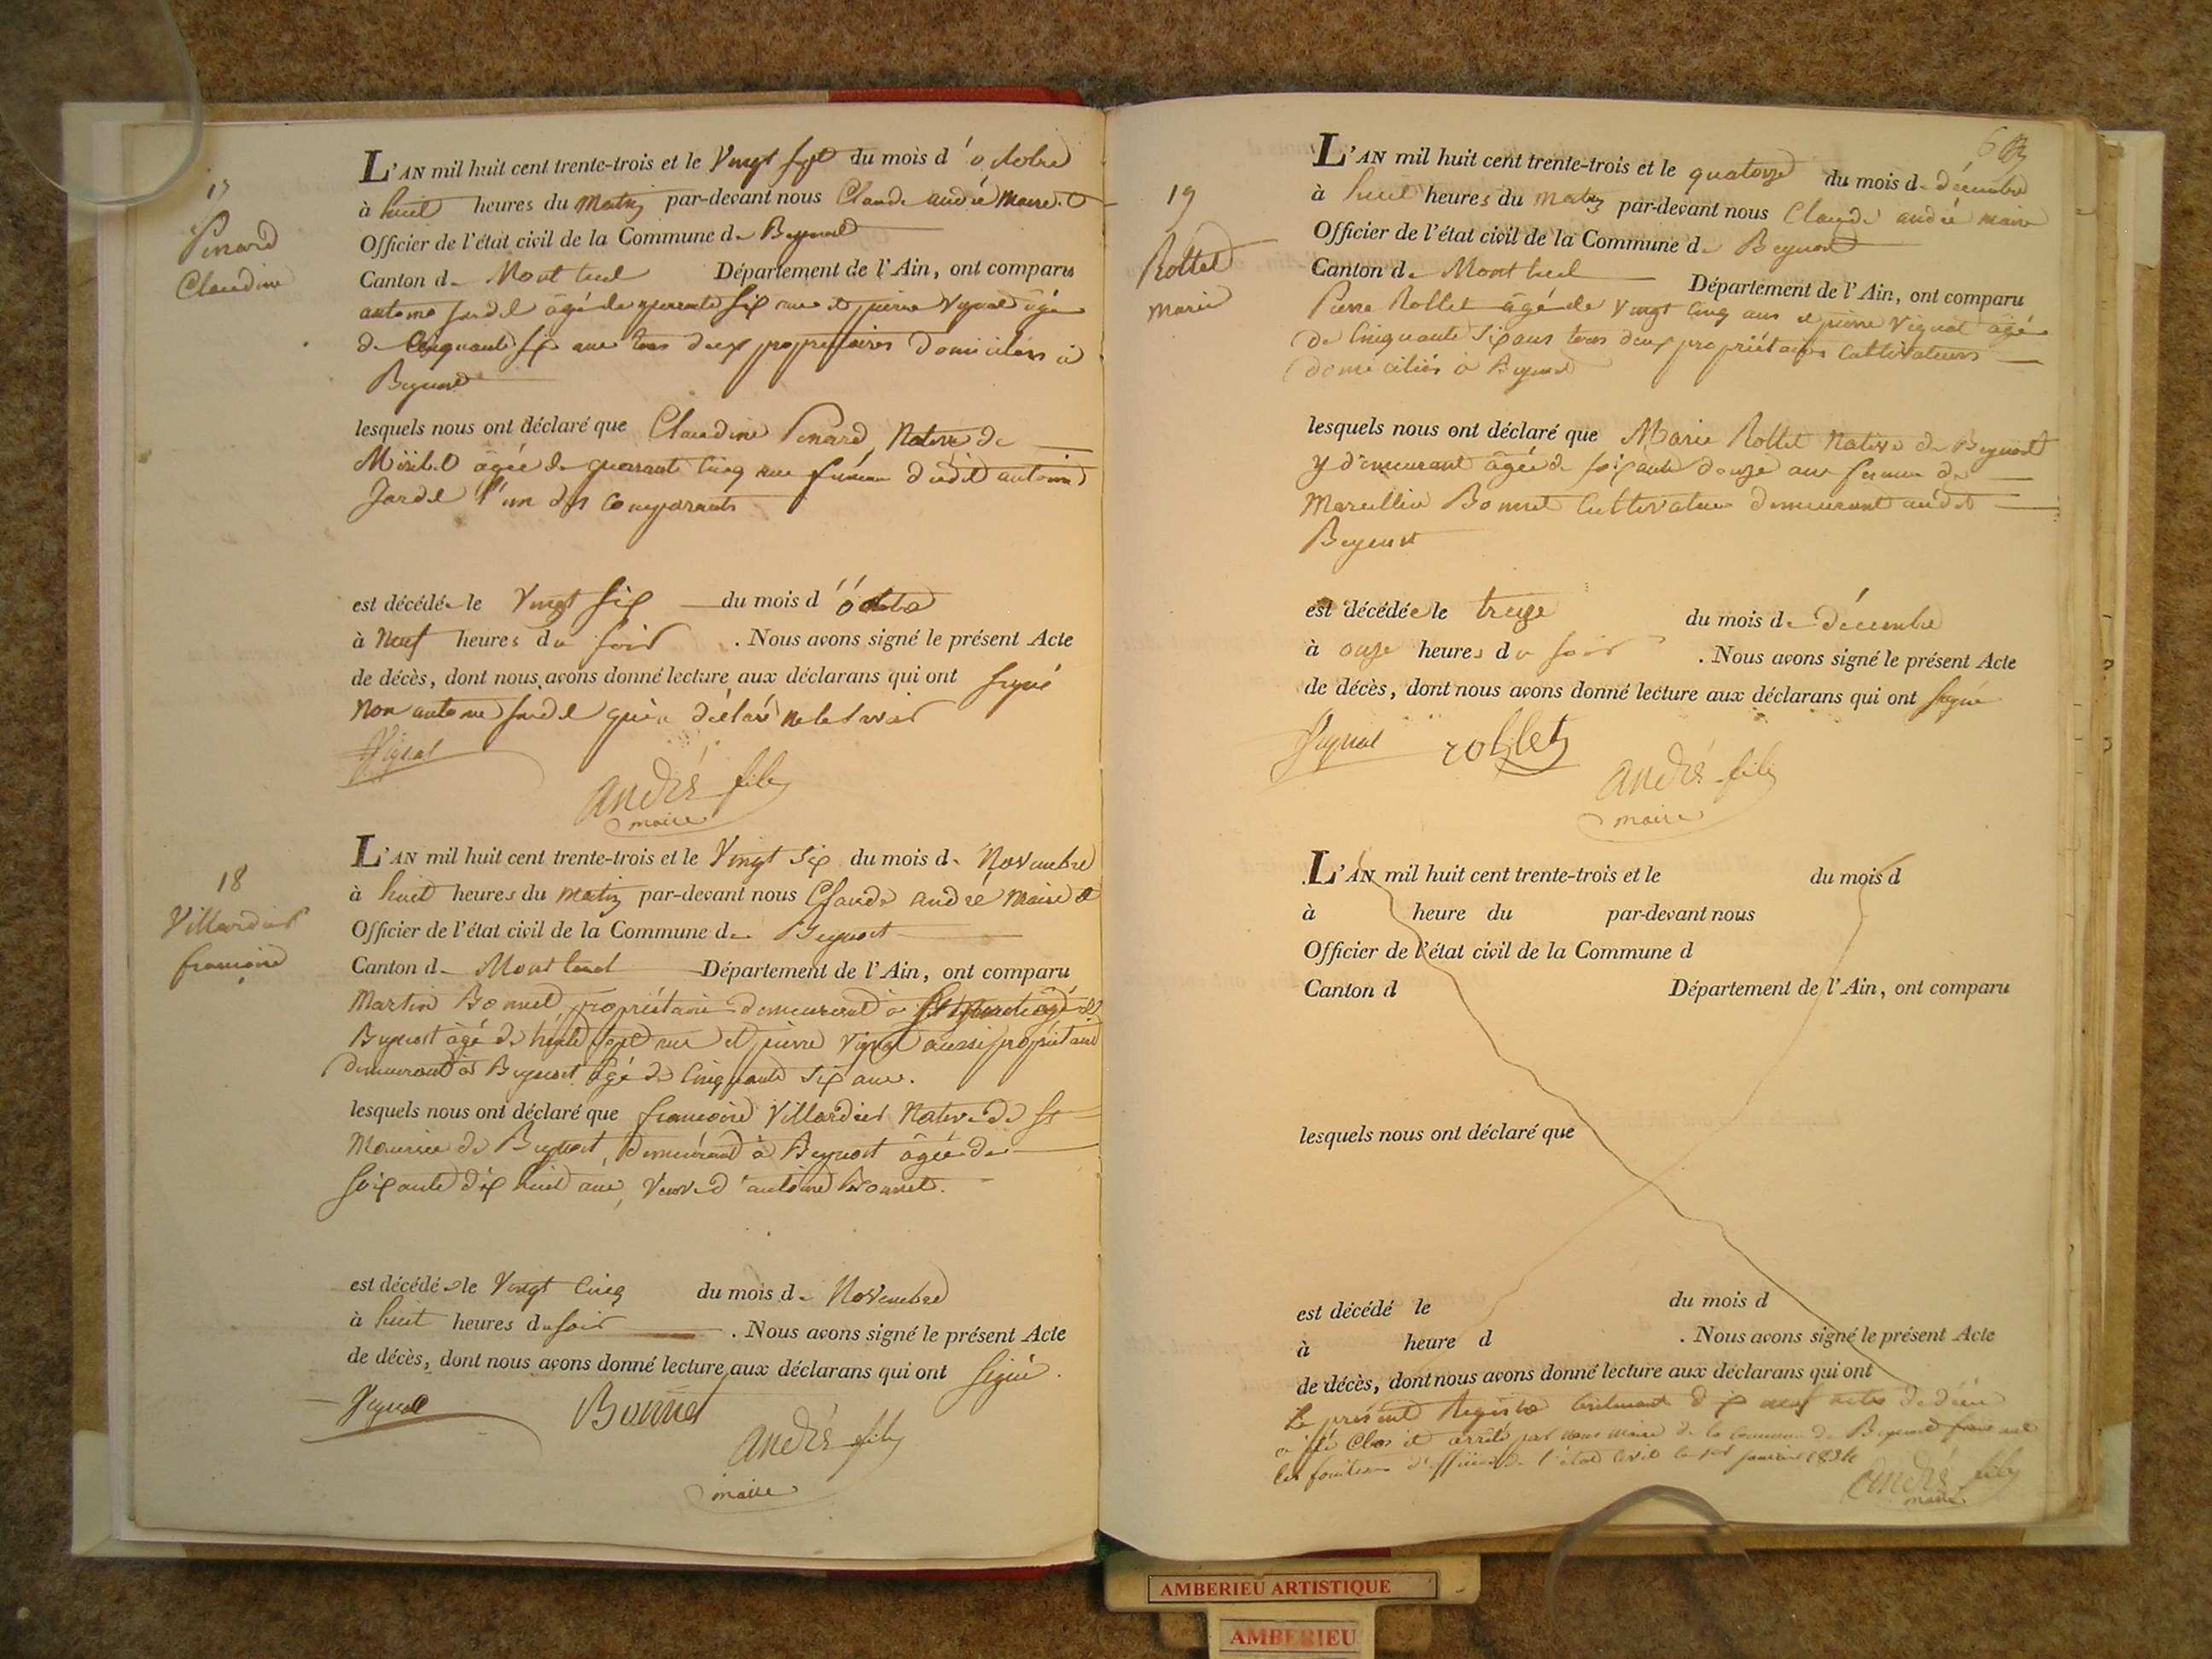 17
Pinard
Claudine
L'AN mil huit cent trente-trois et le Vingt Sept du mois d'octobre
à huit heures du Matin par-devant nous Claude andré Maire et
Officier de l'état civil de la Commune de Beynost
Canton de Montluel Département de l'Ain, ont comparu
antoine Jardel âgé de quarante six ans et pierre Vignat âgé
de Cinquante six ans tous deux propriétaires domiciliés à
Beynost
lesquels nous ont déclaré que Claudine Pinard, Native de
Miribel âgée de quarante Cinq ans femme dudit antoine
Jardel l'un des Comparants
est décédée le Vingt six du mois d'octobre
à Neuf heures du soir. Nous avons signé le présent Acte
de décès, dont nous avons donné lecture aux déclarans qui ont signé
Non antoine Jardel qui a déclaré ne le savoir
Vignat
andré fils
maire
18
Villardier
françoise
L'AN mil huit cent trente-trois et le Vingt six du mois de Novembre
à huit heures du matin par-devant nous Claude andré Maire et
Officier de l'état civil de la Commune de Beynost
Canton de Montluel Département de l'Ain, ont comparu
Martin Bonnet propriétaire demeurant à
Beynost âgé de trente sept ans et pierre Vignat aussi propriétaire
demeurant à Beynost âgé de Cinquante six ans.
lesquels nous ont déclaré que françoise Villardier Native de St
Maurice de Beynost, demeurant à Beynost âgée de
soixante dix huit ans, Veuve d'antoine Bonnet.
est décédée le Vingt Cinq du mois de Novembre
à huit heures du soir. Nous avons signé le présent Acte
de décès, dont nous avons donné lecture aux déclarans qui ont signé.
Vignat Bonnet
andré fils
maire
19
Rollet
marie
L'AN mil huit cent trente-trois et le quatorze du mois de décembre
à huit heures du matin par-devant nous Claude andré maire
Officier de l'état civil de la Commune de Beynost
Canton de Montluel Département de l'Ain, ont comparu
Pierre Rollet âgé de Vingt Cinq ans et pierre Vignat âgé
de Cinquante six ans tous deux propriétaires Cultivateurs
domiciliés à Beynost
lesquels nous ont déclaré que Marie Rollet Native de Beynost
y demeurant âgée de soixante douze ans femme de
Marcellin Bonnet Cultivateur demeurant audit
Beynost
est décédée le treize du mois de décembre
à onze heures du soir. Nous avons signé le présent Acte
de décès, dont nous avons donné lecture aux déclarans qui ont signé
Vignat rollet
andré fils
maire
L'AN mil huit cent trente-trois et le du mois d
à heure du par-devant nous
Officier de l'état civil de la Commune d
Canton d Département de l'Ain, ont comparu
lesquels nous ont déclaré que
est décédé le du mois d
à heure d. Nous avons signé le présent Acte
de décès, dont nous avons donné lecture aux déclarans qui ont
Le présent Registre contenant dix neuf actes de décès
a été Clos et arrêté par nous maire de la Commune de Beynost
les fonctions d'officier de l'état Civil le 1er janvier 1834
andré fils
maire
AMBERIEU ARTISTIQUE
AMBERIEU